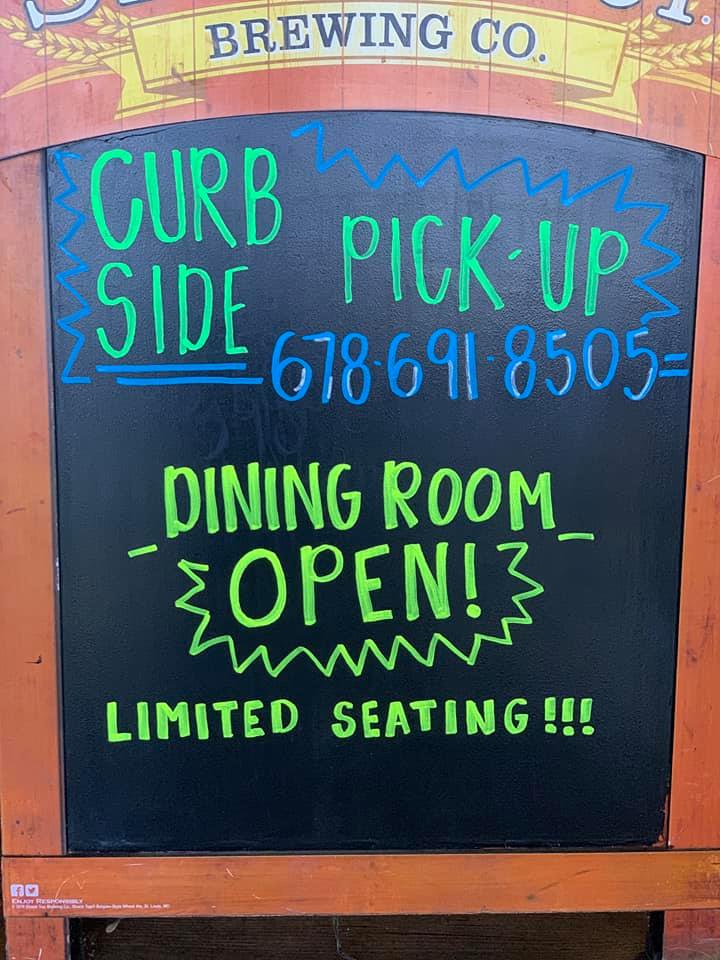 BREWING CO.
CURB
SIDE
PICK-UP
678-691-8505
DINING ROOM
OPEN!
LIMITED SEATING!!!
ENJOY RESPONSIBLY